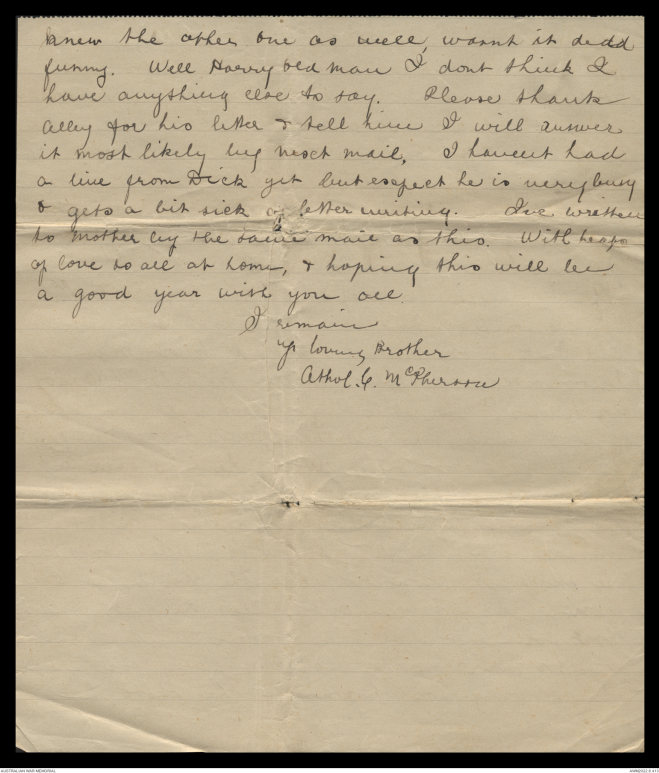 knew the other one as well, wasnt it dedd
funny. Well Harry old man I dont think I
have anything else to say. Please thank
Alley for his letter & tell him I will answer
it most likely by next mail. I havent had
a line from Dick yet but expect he is very busy
& gets a bit sick of letter writing. I've written
to mother by the same mail as this. With heaps
of love to all at home, & hoping this will be
a good year with you all.
I remain
yr loving Brother
Athol. C. McPherson
AUSTRALIAN WAR MEMORIAL